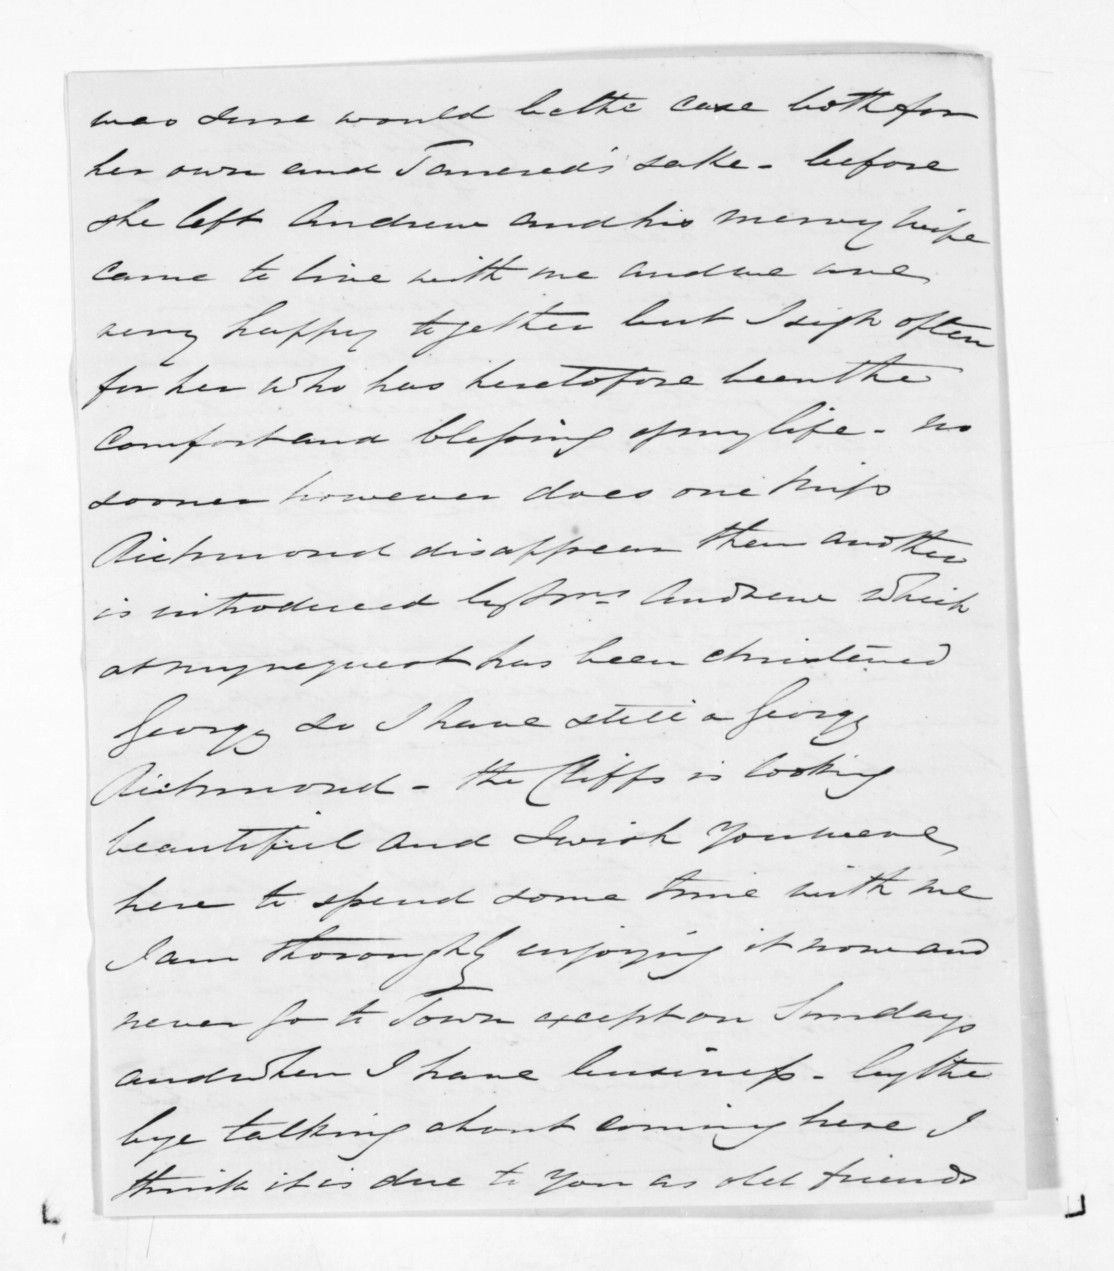 was sure would be the case both for
her own and Tancred's sake - before
she left Andrew and his merry wife
came to live with me and we are
very happy together but I sigh often
for her who has heretofore been the
comfort and blessing of my life - no
sooner however does one Miss
Richmond disappear then another
is introduced by Mrs Andrew which
at my request has been christened
Georgy so I have still a Georgy
Richmond - the Cliffs is looking
beautiful and I wish you were
here to spend some time with me
I am thoroughly enjoying it now and
never go to Town except on Sundays
and when I have business - by the
bye talking about coming here I
think it is due to you as old friends